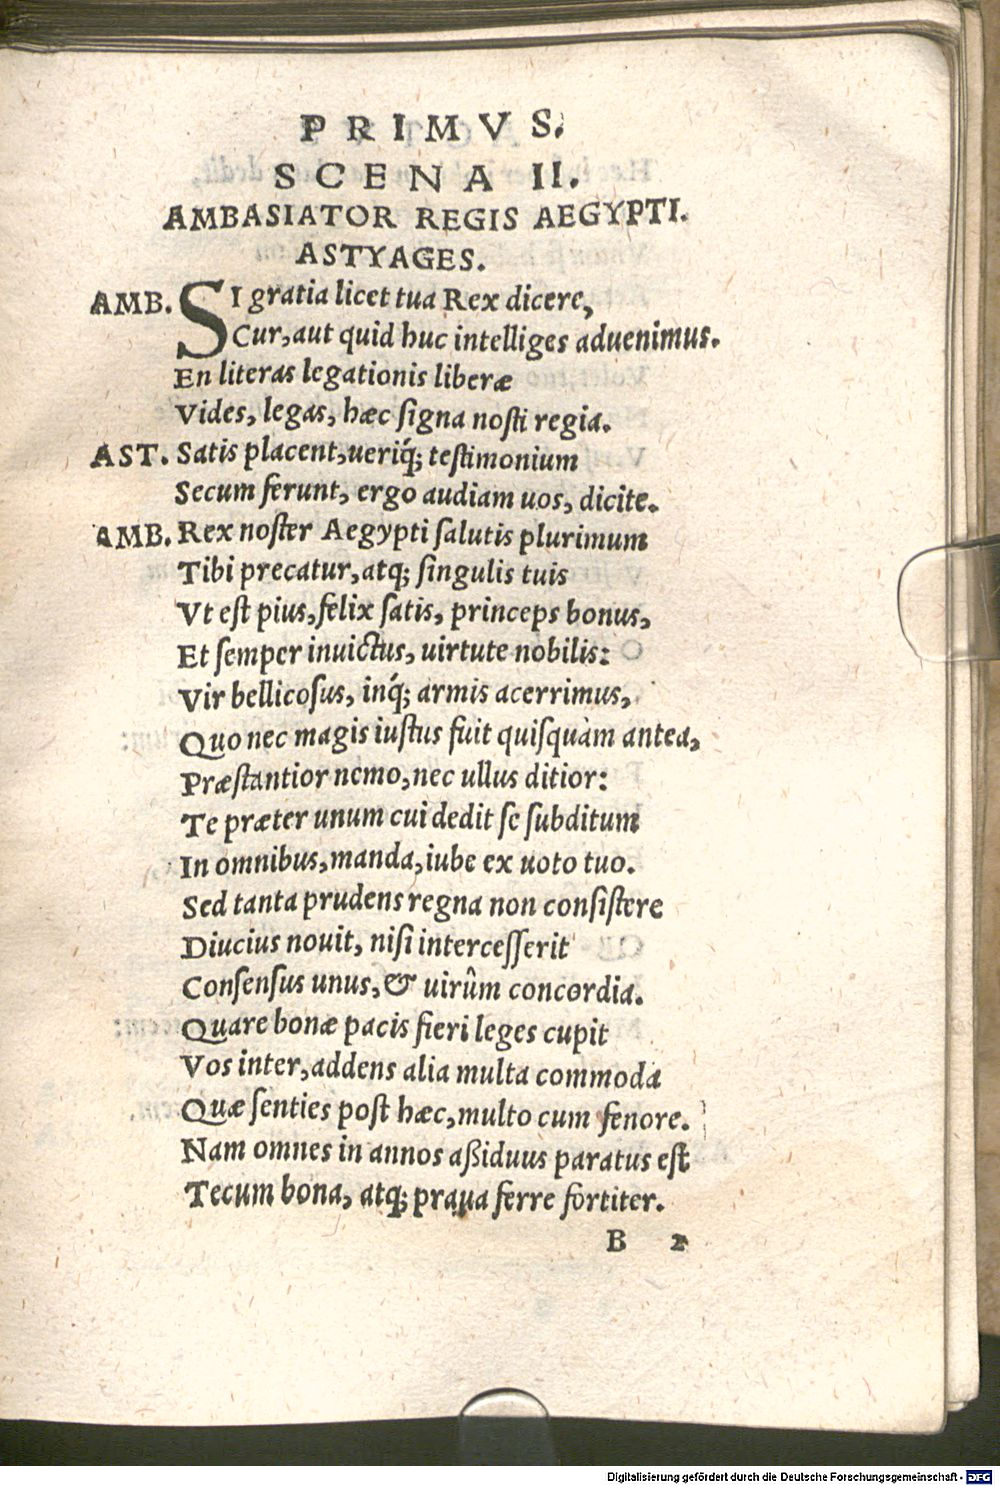 PRIMVS.
SCENA II.
AMBASIATOR REGIS AEGYPTI.
ASTYAGES.
AMB. SI gratia licet tua Rex dicere,
Cur, aut quid huc intelliges aduenimus.
En literas legationis liberæ
Vides, legas, hæc signa nosti regia.
AST. Satis placent, ueriq́; testimonium
Secum ferunt, ergo audiam uos, dicite.
AMB. Rex noster Aegypti salutis plurimum
Tibi precatur, atq; singulis tuis
Vt est pius, felix satis, princeps bonus,
Et semper inuictus, uirtute nobilis:
Vir bellicosus, inq́; armis acerrimus,
Quo nec magis iustus fuit quisquàm antea,
Præstantior nemo, nec ullus ditior:
Te præter unum cui dedit se subditum
In omnibus, manda, iube ex uoto tuo.
Sed tanta prudens regna non consistere
Diucius nouit, nisi intercesserit
Consensus unus, & uirûm concordia.
Quare bonæ pacis fieri leges cupit
Vos inter, addens alia multa commoda
Quæ senties post hæc, multo cum fenore.
Nam omnes in annos aßiduus paratus est
Tecum bona, atq; praua ferre fortiter.
B 2
Digitalisierung gefördert durch die Deutsche Forschungsgemeinschaft - DFG